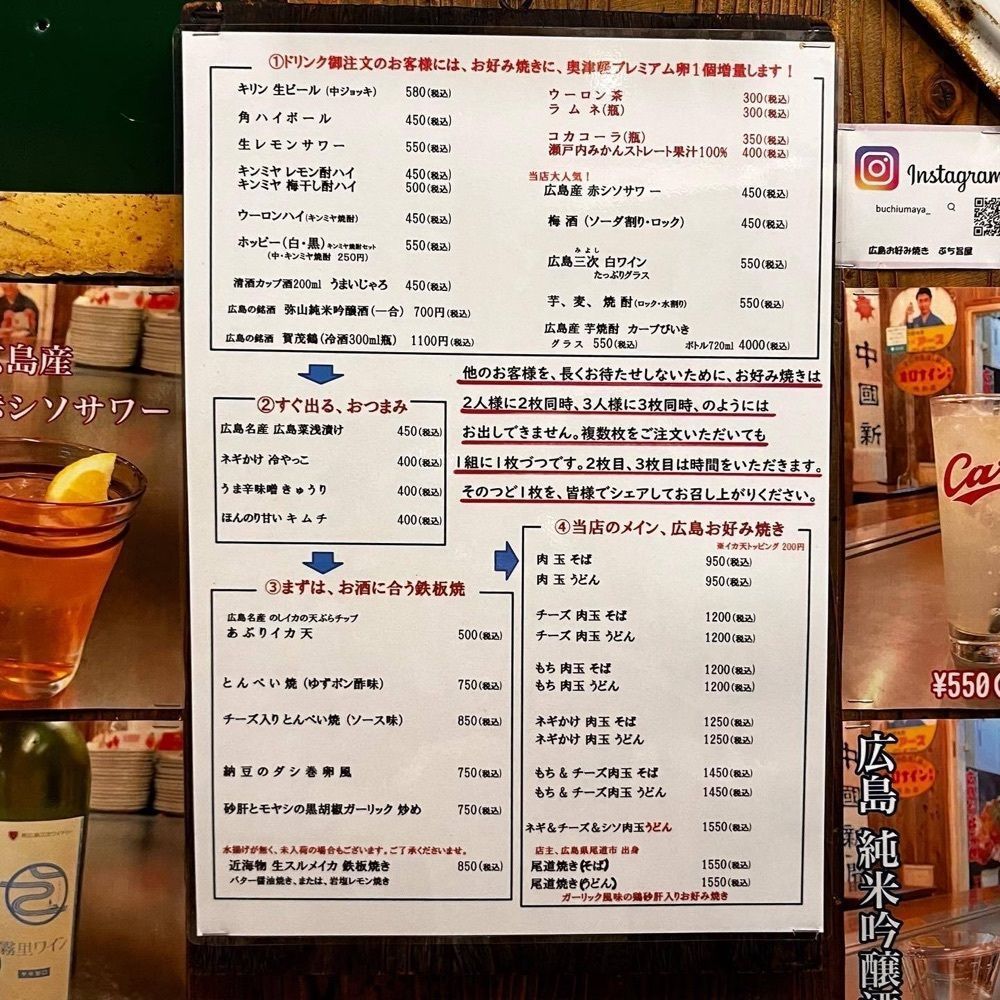 ①ドリンク御注文のお客様には、お好み焼きに、奥津産プレミアム卵1個増量します!
キリン 生ビール (中ジョッキ) 580(税込)
角ハイボール 450(税込)
生レモンサワー 550(税込)
キンミヤ レモン酎ハイ 450(税込)
キンミヤ 梅干し酎ハイ 500(税込)
ウーロンハイ(キンミヤ焼酎) 450(税込)
ホッピー(白・黒)キンミヤ焼酎セット 550(税込)
(中・キンミヤ焼酎 250円)
清酒カップ酒200ml うまいじゃろ 450(税込)
広島の銘酒 弥山純米吟醸酒(一合) 700円(税込)
広島の銘酒 賀茂鶴(冷酒300ml瓶) 1100円(税込)
ウーロン茶 300(税込)
ラムネ(瓶) 300(税込)
コカコーラ(瓶) 350(税込)
瀬戸内みかんストレート果汁100% 400(税込)
当店大人気!
広島産 赤シソサワー 450(税込)
梅酒 (ソーダ割り・ロック) 450(税込)
みよし
広島三次 白ワイン 550(税込)
たっぷりグラス
芋、麦、焼酎(ロック・水割り) 550(税込)
広島産 芋焼酎 カープびいき
グラス 550(税込) ボトル720ml 4000(税込)
他のお客様を、長くお待たせしないために、お好み焼きは
2人様に2枚同時、3人様に3枚同時、のようには
お出しできません。複数枚をご注文いただいても
1組に1枚づつです。2枚目、3枚目は時間をいただきます。
そのつど1枚を、皆様でシェアしてお召し上がりください。
②すぐ出る、おつまみ
広島名産 広島菜浅漬け 450(税込)
ネギかけ 冷やっこ 400(税込)
うま辛味噌 きゅうり 400(税込)
ほんのり甘い キムチ 400(税込)
③まずは、お酒に合う鉄板焼
広島名産 のしイカの天ぷらチップ
あぶりイカ天 500(税込)
とんぺい焼 (ゆずポン酢味) 750(税込)
チーズ入りとんぺい焼 (ソース味) 850(税込)
納豆のダシ巻卵風 750(税込)
砂肝とモヤシの黒胡椒ガーリック炒め 750(税込)
水揚げが無く、未入荷の場合もございます。ご了承くださいませ。
近海物 生スルメイカ 鉄板焼き 850(税込)
バター醤油焼き、または、岩塩レモン焼き
④当店のメイン、広島お好み焼き
※イカ天トッピング 200円
肉玉そば 950(税込)
肉玉うどん 950(税込)
チーズ 肉玉 そば 1200(税込)
チーズ 肉玉 うどん 1200(税込)
もち 肉玉 そば 1200(税込)
もち 肉玉 うどん 1200(税込)
ネギかけ 肉玉 そば 1250(税込)
ネギかけ 肉玉 うどん 1250(税込)
もち & チーズ肉玉 そば 1450(税込)
もち & チーズ肉玉 うどん 1450(税込)
ネギ&チーズ&シソ肉玉うどん 1550(税込)
店主、広島県尾道市 出身
尾道焼き(そば) 1550(税込)
尾道焼き(うどん) 1550(税込)
ガーリック風味の鶏砂肝入りお好み焼き
Instagram
buchiumaya_
広島お好み焼き ぶち旨屋
島産
シソサワー
霧里ワイン
中國新
Ca
¥550
広島 純米吟醸酒